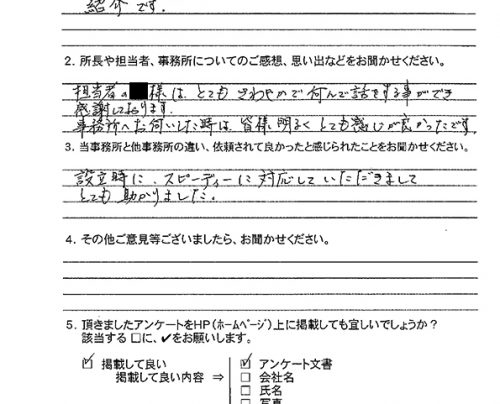 紹介です.
2. 所長や担当者、事務所についてのご感想、思い出などをお聞かせください。
担当者の 様は、とても さわやかで 何んで話をする事ができ
感謝しております.
事務所へお伺いした時は、皆様 明るく とても感じが良かったです.
3. 当事務所と他事務所の違い、依頼されて良かったと感じられたことをお聞かせください。
設立時に、スピーディーに対応して いただきまして
とても 助かりました.
4. その他ご意見等ございましたら、お聞かせください。
5. 頂きましたアンケートをHP(ホームページ)上に掲載しても宜しいでしょうか?
該当する □に、✔をお願いします。
☑ 掲載して良い ☑ アンケート文書
掲載して良い内容 ⇒ □ 会社名
□ 氏名
□ 写真